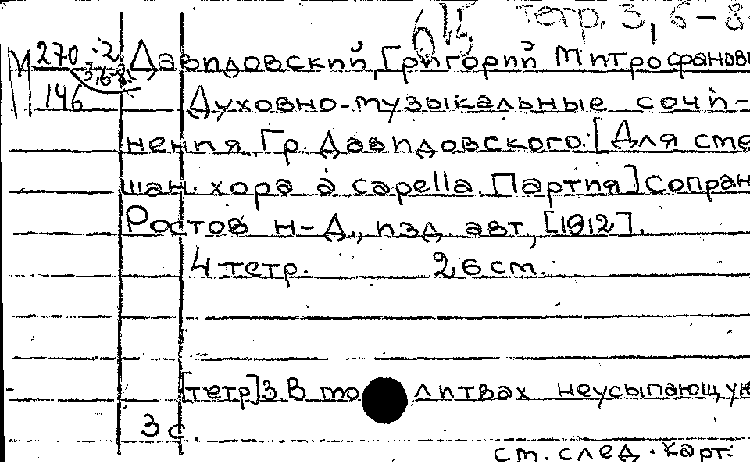 тетр. 3, 6-8
М 270-2 Давидовский, Григорий Митрофанови
146 Духовно-музыкальные сочи-
нения Гр. Давидовского. [Для сме
шан. хора a capella. Партия] Сопран
Ростов н-Д., изд. авт., [1912].
4 тетр. 26 см.
[тетр] 3. В мо литвах неусыпающую
3 с.
см. след. карт.